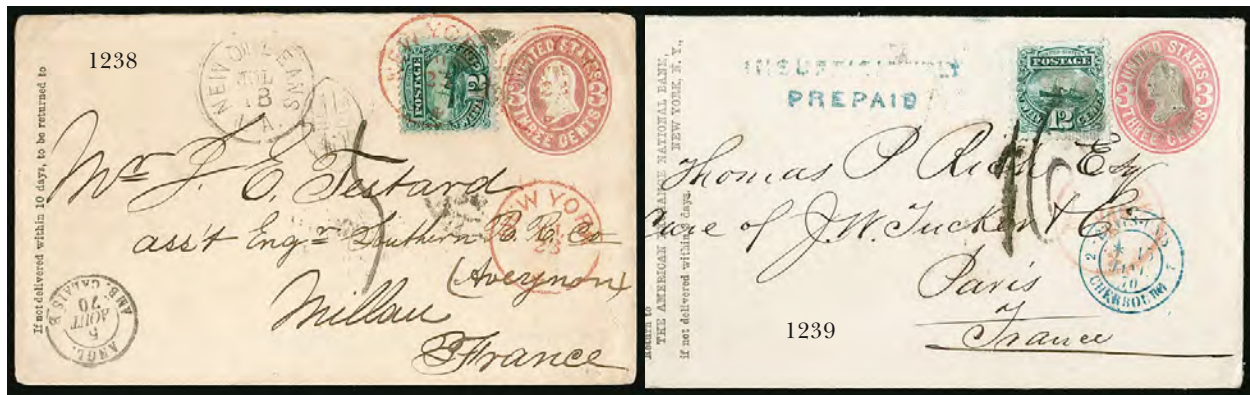 1238
If not delivered within 10 days, to be returned to
NEW ORLEANS
JUL
18
LA.
NEW YORK
POSTAGE
12
UNITED STATES
3 3
THREE CENTS
Mr. J. E. Testard
ass't Engr Southern R. R. Co
(Aveyron)
Millau
France
NEW YORK
23
ANGL.
5
AOUT
70
AMB. CALAIS
1239
Return to
THE AMERICAN EXCHANGE NATIONAL BANK,
NEW YORK, N. Y.,
if not delivered within days.
INSUFFICIENTLY
PREPAID
POSTAGE
12
UNITED STATES
3 3
THREE CENTS
Thomas P Rich Esq
Care of J. W. Tucker & Co
Paris
France
2 CHERBOURG 2
70